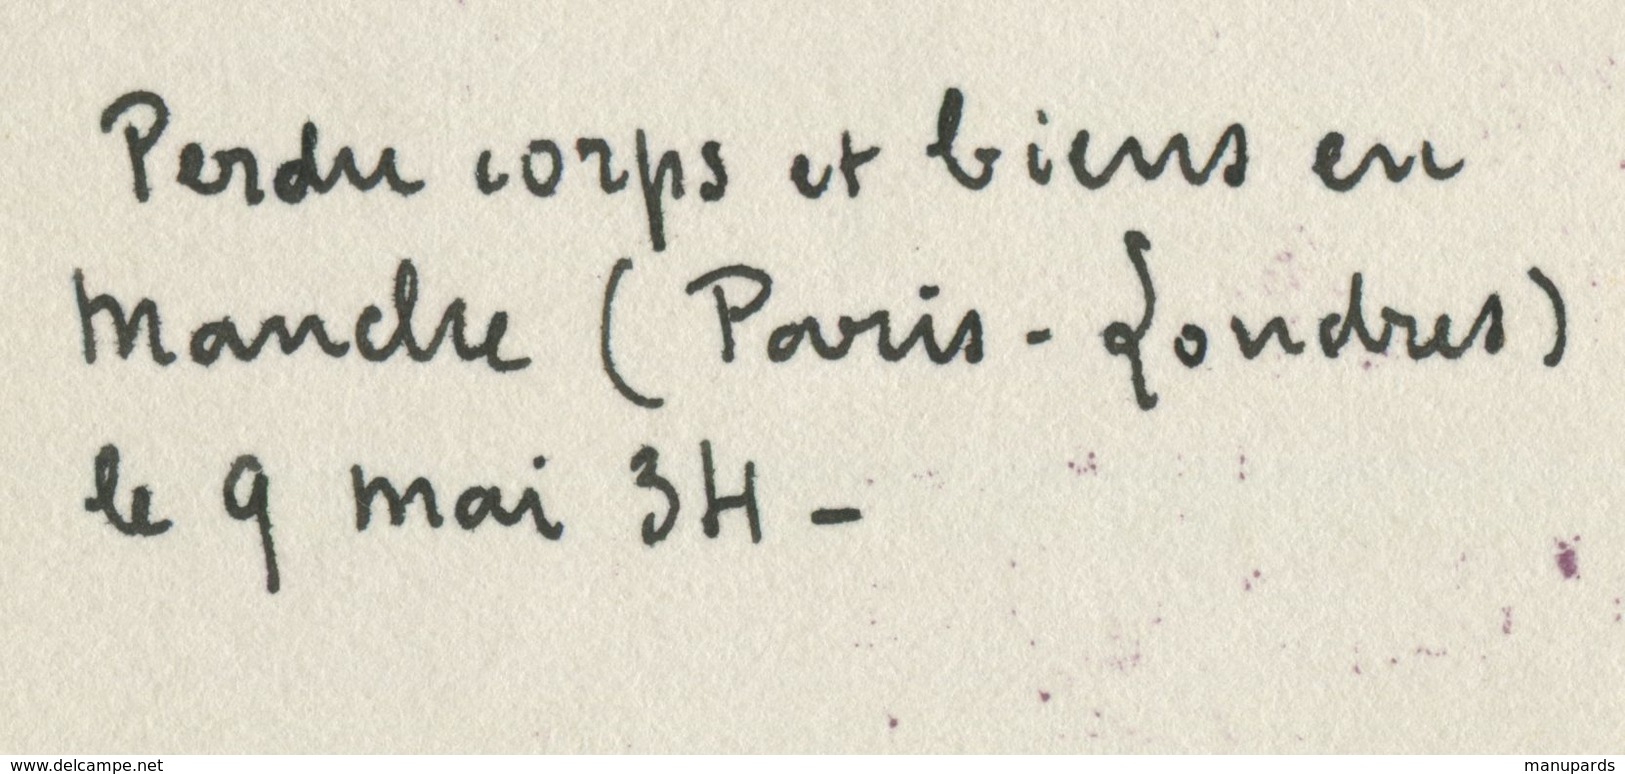 Perdu corps et biens en
Manche (Paris - Londres)
le 9 mai 34 -
www.delcampe.net
manupards